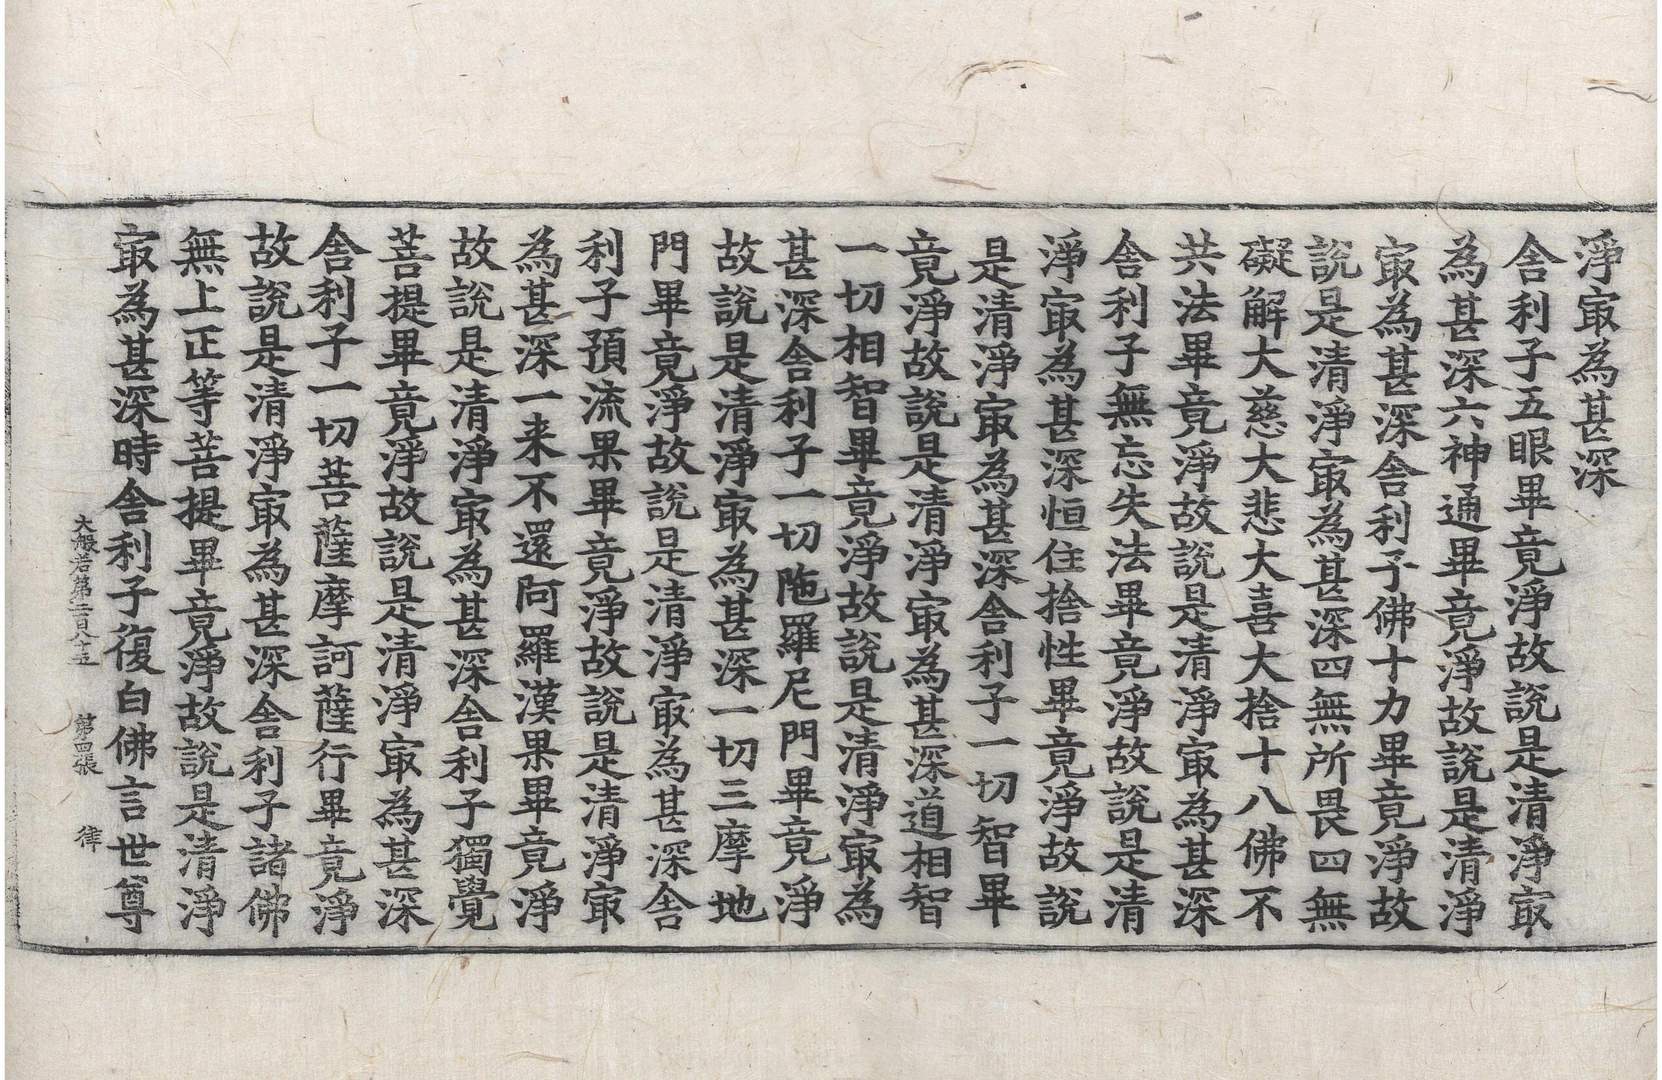 淨㝡為甚深
舎利子五眼畢竟淨故說是清淨㝡
為甚深六神通畢竟淨故說是清淨
㝡為甚深舎利子佛十力畢竟淨故
說是清淨㝡為甚深四無所畏四無
礙解大慈大悲大喜大捨十八佛不
共法畢竟淨故說是清淨㝡為甚深
舎利子無忘失法畢竟淨故說是清
淨㝡為甚深恒住捨性畢竟淨故說
是清淨㝡為甚深舎利子一切智畢
竟淨故說是清淨㝡為甚深道相智
一切相智畢竟淨故說是清淨㝡為
甚深舎利子一切陁羅尼門畢竟淨
故說是清淨㝡為甚深一切三摩地
門畢竟淨故說是清淨㝡為甚深舎
利子預流果畢竟淨故說是清淨㝡
為甚深一来不還阿羅漢果畢竟淨
故說是清淨㝡為甚深舎利子獨覺
菩提畢竟淨故說是清淨㝡為甚深
舎利子一切菩薩摩訶薩行畢竟淨
故說是清淨㝡為甚深舎利子諸佛
無上正等菩提畢竟淨故說是清淨
㝡為甚深時舎利子復白佛言世尊
大般若第二百八十五 第四張 律